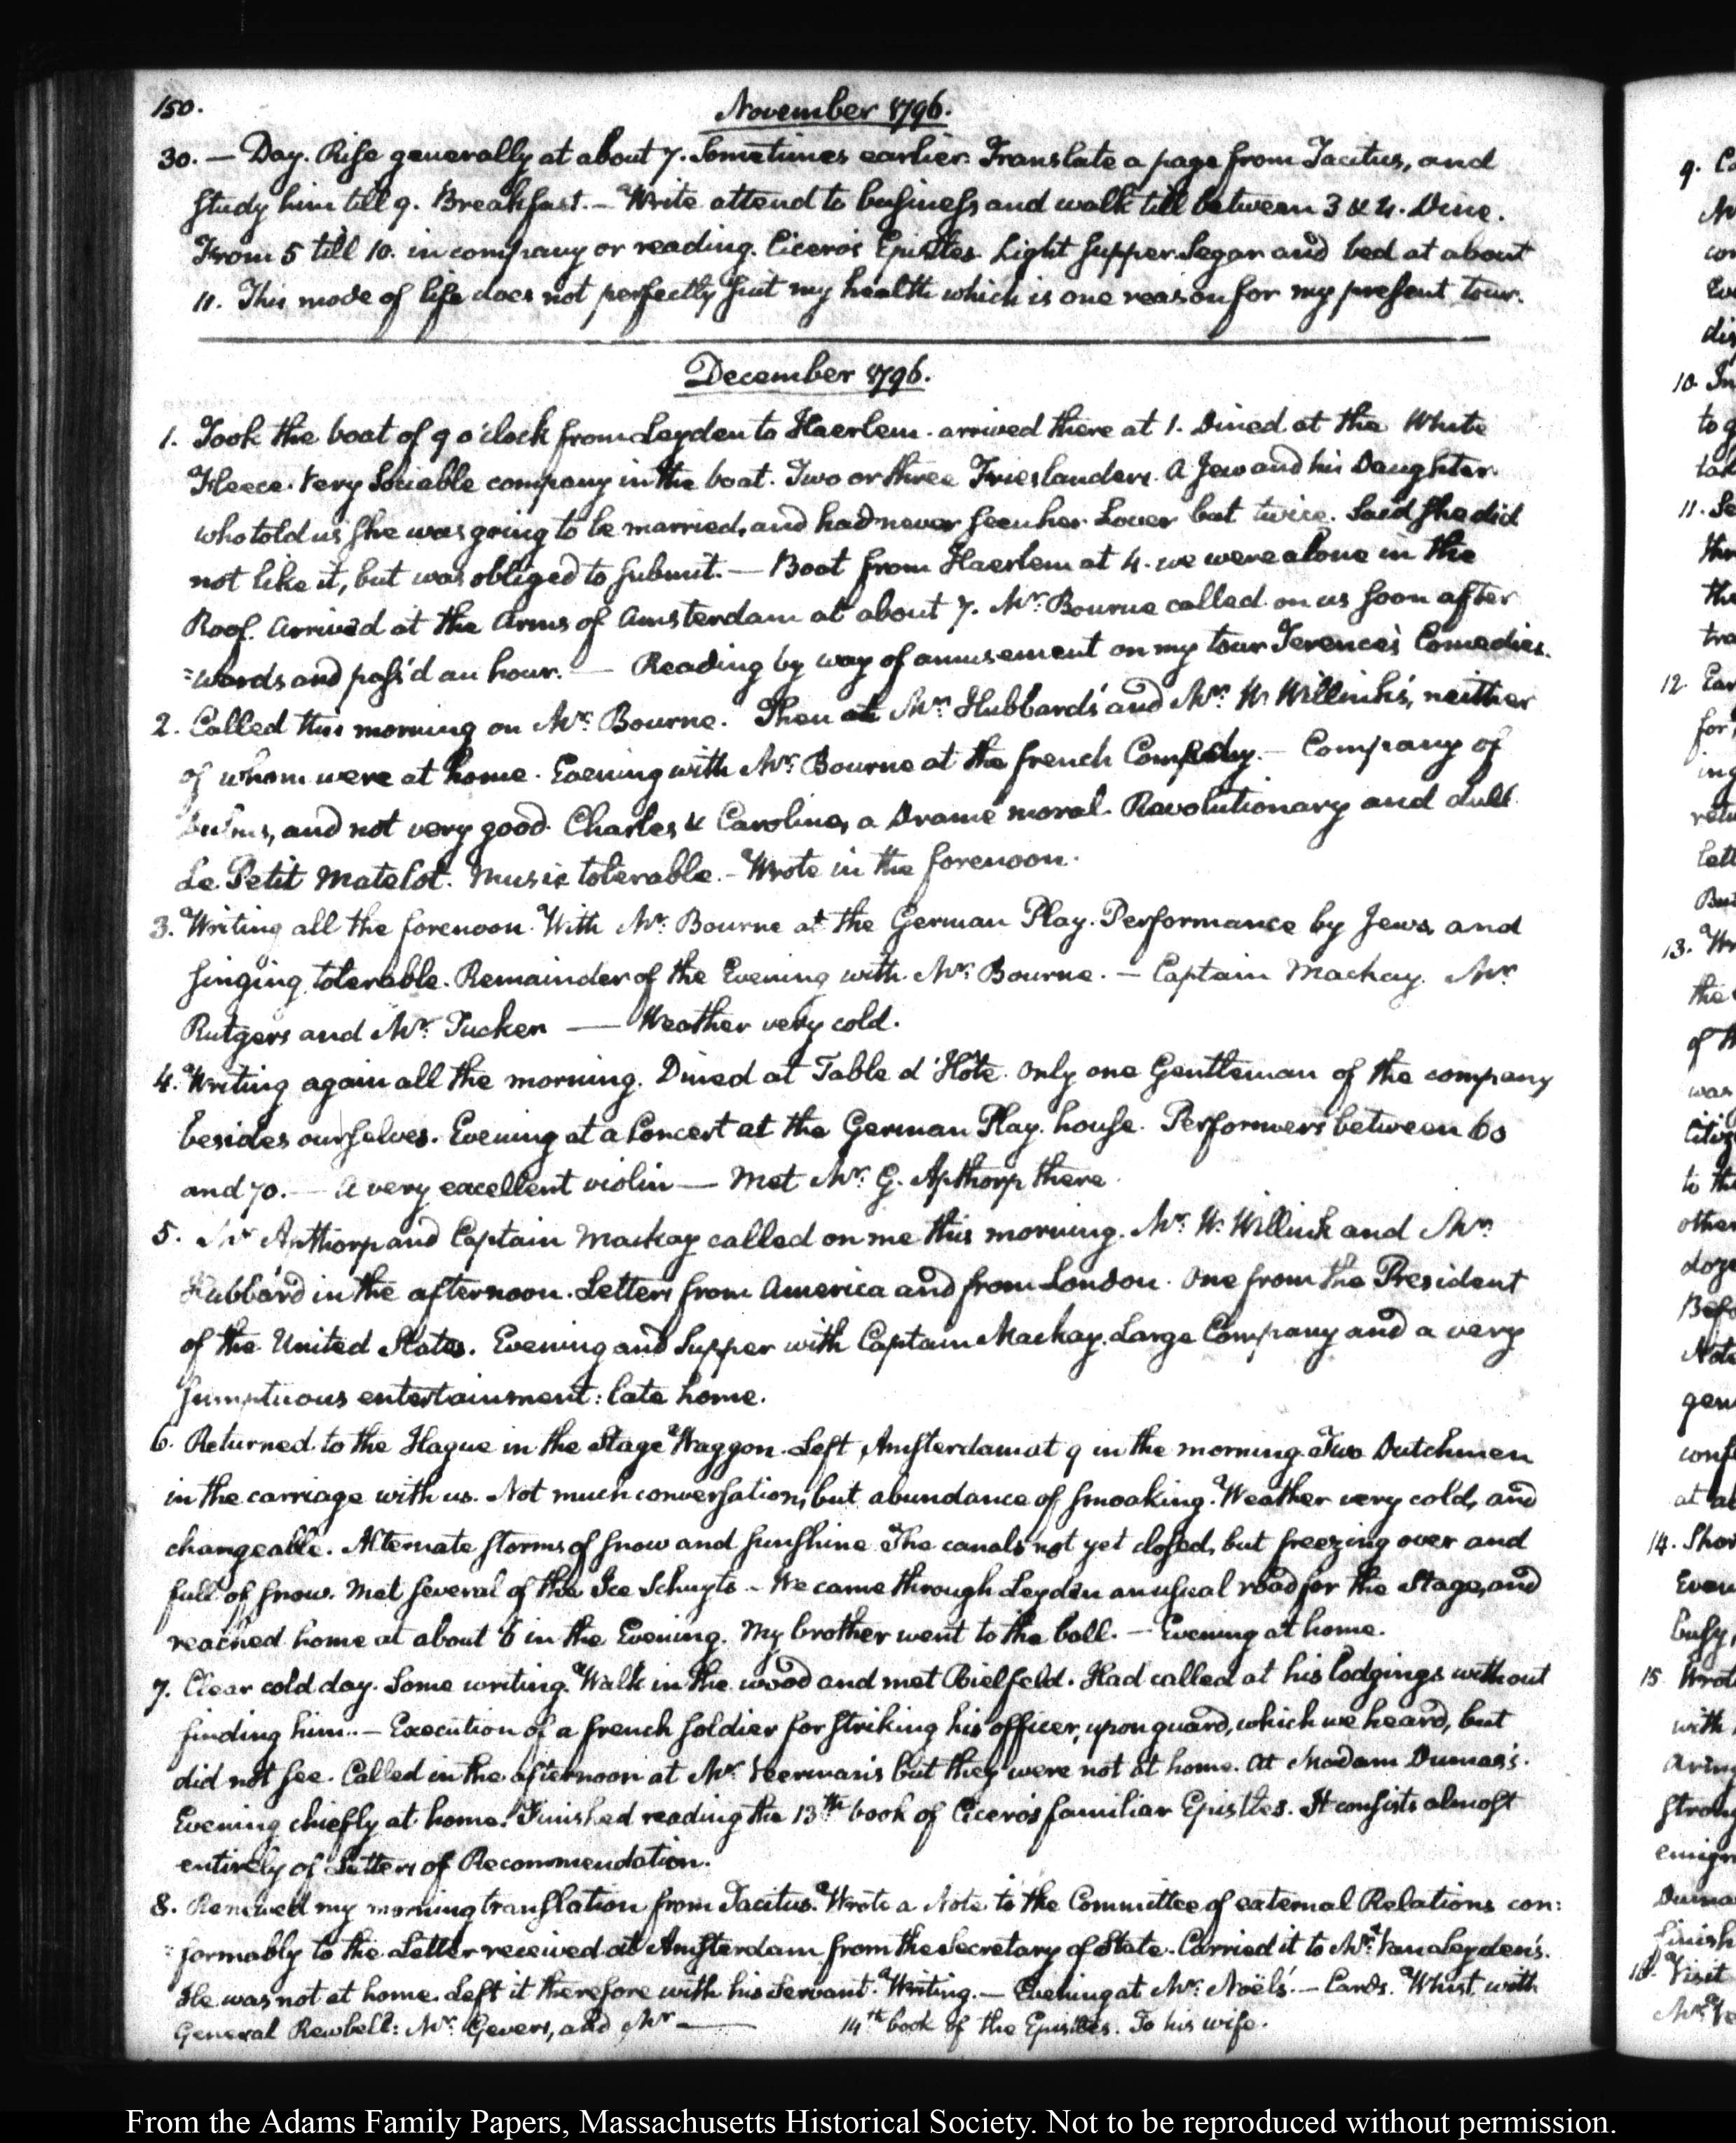 150.
November 1796.
30. — Day. Rise generally at about 7. Sometimes earlier. Translate a page from Tacitus, and
study him till 9. Breakfast. — Write attend to business and walk till between 3 & 4. Dine.
From 5 till 10. in company or reading. Cicero's Epistles. Light supper. Segar and bed at about
11. This mode of life does not perfectly suit my health which is one reason for my present tour.
December 1796.
1. Took the boat of 9 o'clock from Leyden to Haerlem. arrived there at 1. Dined at the White
Fleece. Very Sociable company in the boat. Two or three Frieslanders. A Jew and his Daughter
who told us she was going to be married, and had never seen her Lover but twice. Said she did
not like it, but was obliged to submit. — Boat from Haerlem at 4. we were alone in the
Roof. Arrived at the Arms of Amsterdam at about 7. Mr. Bourne called on us soon after
=wards and pass'd an hour. — Reading by way of amusement on my tour Terence's Comedies.
2. Called this morning on Mr. Bourne. Then at Mr. Hubbard's and Mr. W. Willink's, neither
of whom were at home. Evening with Mr. Bourne at the french Comedy. — Company of
and not very good. Charles & Caroline, a Drame moral. Revolutionary and dull.
Le Petit Matelot. Music tolerable. — Wrote in the forenoon.
3. Writing all the forenoon. With Mr. Bourne at the German Play. Performance by Jews, and
singing tolerable. Remainder of the Evening with Mr. Bourne. — Captain Mackay. Mr.
Rutgers and Mr. Tucker — Weather very cold.
4. Writing again all the morning. Dined at Table d'Hôte. Only one Gentleman of the company
besides ourselves. Evening at a Concert at the German Play house. Performers between 60
and 70. — A very excellent violin — Met Mr. G. Apthorp there.
5. Mr. Apthorp and Captain Mackay called on me this morning. Mr. W. Willink and Mr.
Hubbard in the afternoon. Letters from America and from London. One from the President
of the United States. Evening and Supper with Captain Mackay. Large Company and a very
sumptuous entertainment: late home.
6. Returned to the Hague in the Stage Waggon. Left Amsterdam at 9 in the morning. Two Dutchmen
in the carriage with us. Not much conversation, but abundance of smoaking. Weather very cold, and
changeable. Alternate storms of snow and sunshine. The canals not yet closed, but freezing over and
full of snow. Met several of the Ice Schuyts. — We came through Leyden an usual road for the Stage, and
reached home at about 6 in the Evening. My brother went to the ball. — Evening at home.
7. Clear cold day. Some writing. Walk in the wood and met Bielfeld. Had called at his lodgings without
finding him. — Execution of a french soldier for striking his officer, upon guard, which we heard, but
did not see. Called in the afternoon at Mr. Veerman's but they were not at home. At Madam Dumas's.
Evening chiefly at home. Finished reading the 13th book of Cicero's familiar Epistles. It consists almost
entirely of Letters of Recommendation.
8. Renewed my morning translation from Tacitus. Wrote a Note to the Committee of external Relations con:
=formably to the Letter received at Amsterdam from the Secretary of State. Carried it to Mr. Van Leyden's.
He was not at home. Left it therefore with his Servant. Writing. — Evening at Mr. Noël's. — Cards. Whist with
General Rewbell: Mr. Gevers, and Mr — 14th book of the Epistles. To his wife.
9.
10.
11.
12.
13.
14.
15.
16. Visit
From the Adams Family Papers, Massachusetts Historical Society. Not to be reproduced without permission.